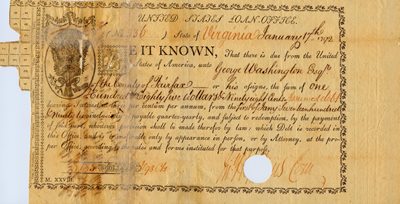 UNITED STATES LOAN OFFICE.
State of Virginia January 17th 1792
BE IT KNOWN, That there is due from the United
States of America, unto George Washington Esqr
of the County of Fairfax or his assigns, the sum of one
Hundred & Eighty five dollars & Ninety eight Cents
bearing Interest at per centum per annum, from the first day of January Seventeen hundred
& Ninety payable quarter-yearly, and subject to redemption, by the payment
of said sum, whenever provision shall be made therefor by law; which Debt is recorded in
this Office, and is transferable only by appearance in person, or by Attorney, at the proper
per Office, according to the rules and forms instituted for that purpose.